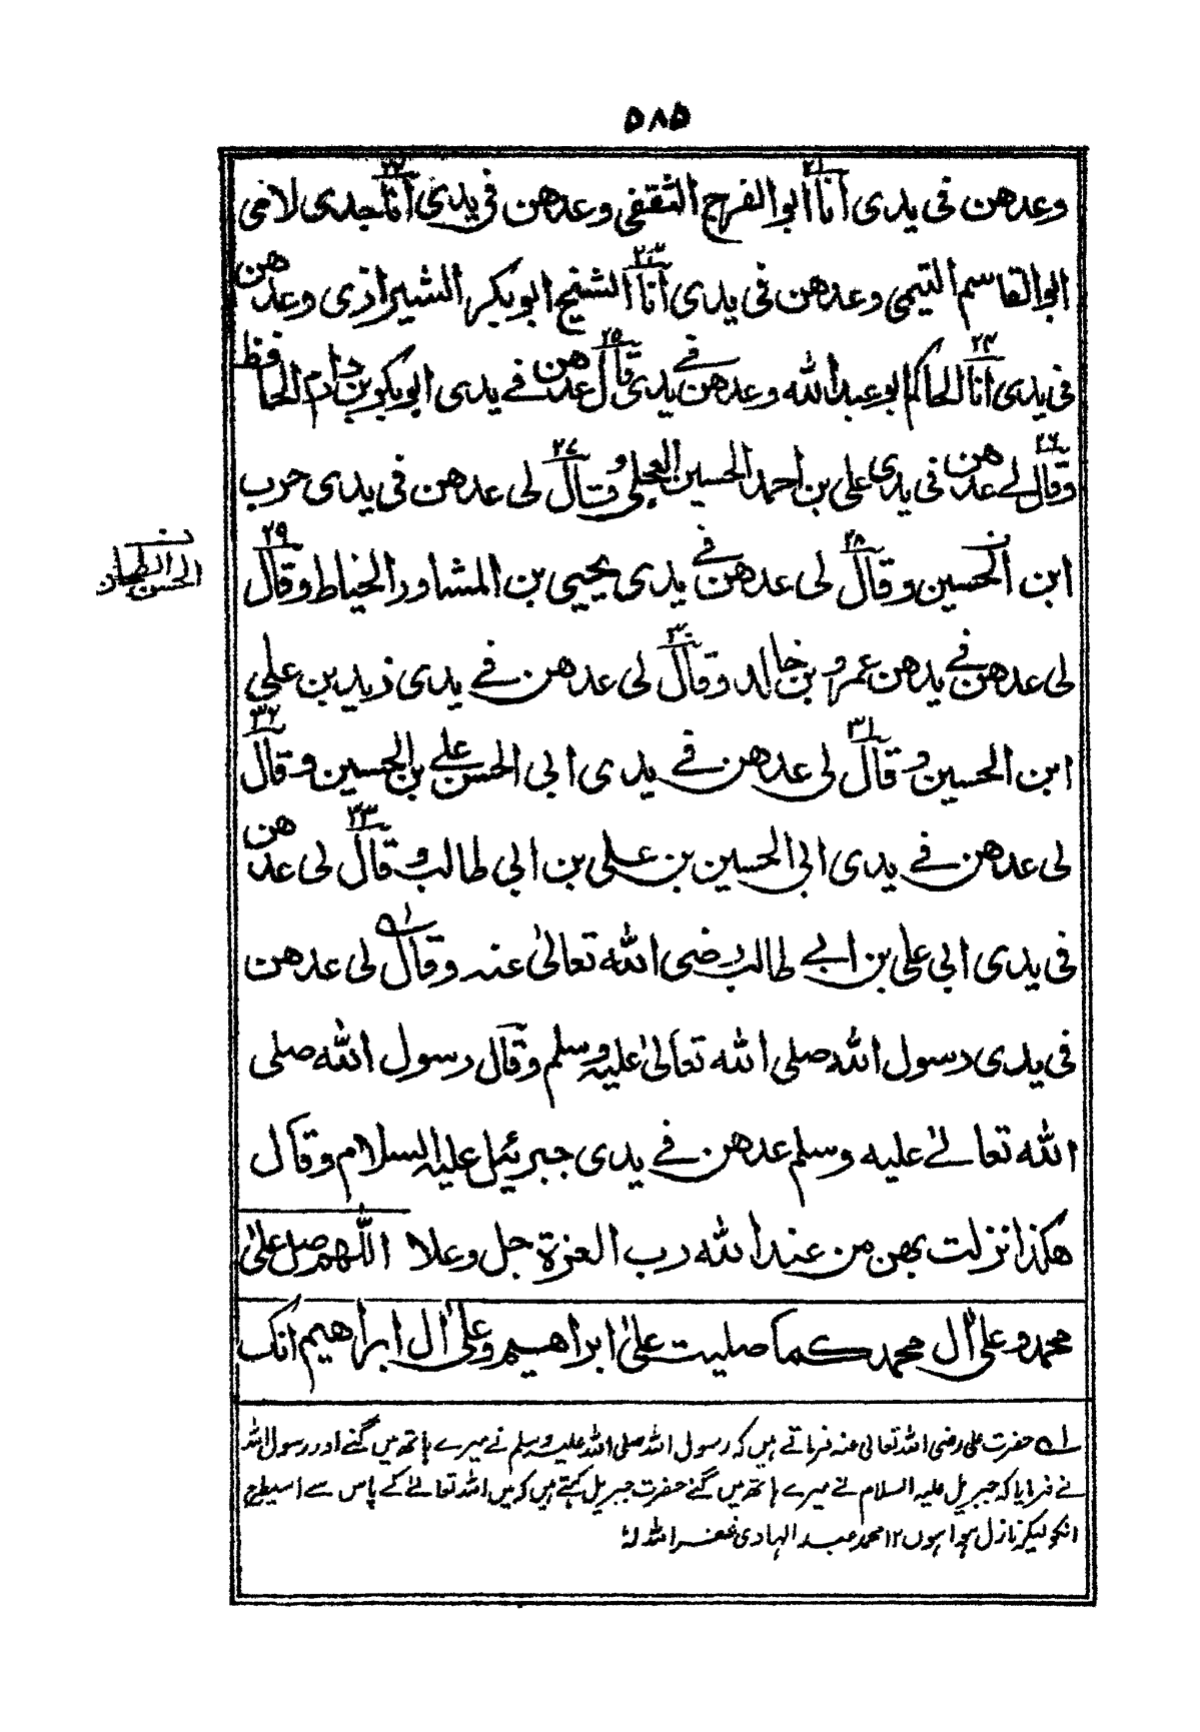 ۵۸۵
وعدهن فی یدی انا ابو الفرج الثقفی وعدهن فی یدی انا جدی لامی
۲۱ ۲۲
ابو القاسم التیمی وعدهن فی یدی انا الشیخ ابو بکر الشیرازی وعدهن
۲۳
فی یدی انا الحاکم ابو عبد الله وعدهن فی یدی قال عدهن فے یدی ابو بکر بن دارم الحافظ
۲۴ ۲۵
وقال لے عدهن فی یدی علی بن احمد الحسین العجلی وقال لی عدهن فی یدی حرب
۲۶ ۲۷
ابن الحسین وقال لی عدهن فی یدی یحیی بن المشاور الخیاط وقال
۲۸ ۲۹
الحسن الطحان
لی عدهن فے یدهن عمرو بن خالد وقال لی عدهن فے یدی زید بن علی
۳۰
ابن الحسین وقال لی عدهن فے یدی ابی الحسن علی بن الحسین وقال
۳۱ ۳۲
لی عدهن فے یدی ابی الحسین بن علی بن ابی طالب وقال لی عدهن
۳۳
فی یدی ابی علی بن ابے طالب رضی الله تعالیٰ عنه وقال لی عدهن
فی یدی رسول الله صلی الله تعالیٰ علیه وسلم وقال رسول الله صلی
الله تعالےٰ علیه وسلم عدهن فے یدی جبرئیل علیه السلام وقال
هکذا نزلت بهن من عند الله رب العزة جل وعلا اللّٰهم صل علیٰ
محمد وعلیٰ اٰل محمد کما صلیت علیٰ ابراهیم وعلیٰ اٰل ابراهیم انک
۱ حضرت علی رضی اللہ تعالی عنہ فرماتے ہیں کہ رسول اللہ صلی اللہ علیہ وسلم نے میرے ہاتھ میں گنے اور رسول اللہ
نے فرمایا کہ جبریل علیہ السلام نے میرے ہاتھ میں گنے حضرت جبریل کہتے ہیں کہ میں اللہ تعالےٰ کے پاس سے اسیطرح
انکو لیکر نازل ہوا ہوں ۱۲ محمد عبد الہادی غفر اللہ لہٗ